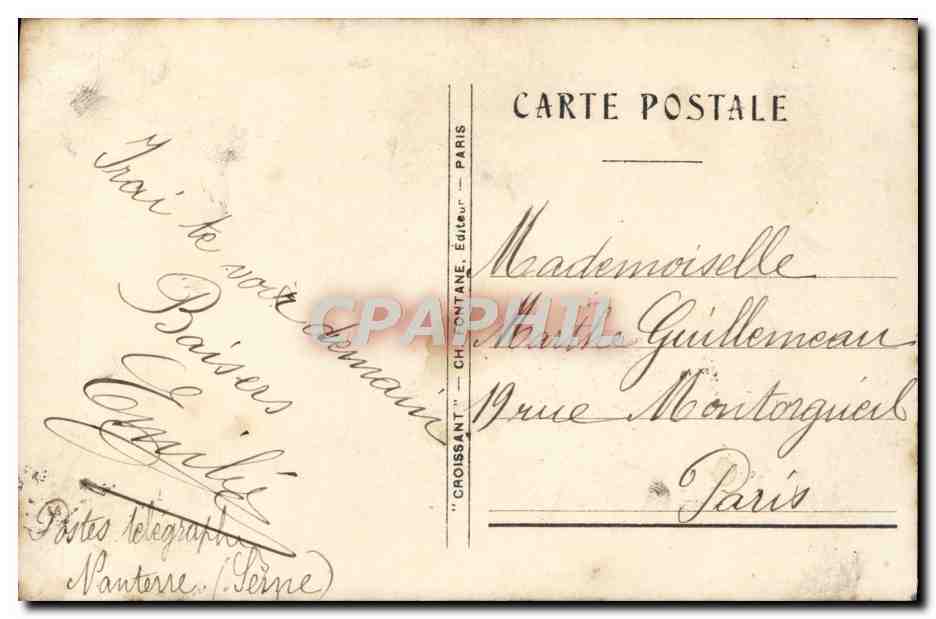 CARTE POSTALE
Irai te voir demain
Baisers
Postes télégraph
Nanterre (Seine)
"CROISSANT" — CH. FONTANE, Editeur — PARIS
Mademoiselle
Marthe Guillemeau
19 rue Montorgueil
Paris
CPAPHIL